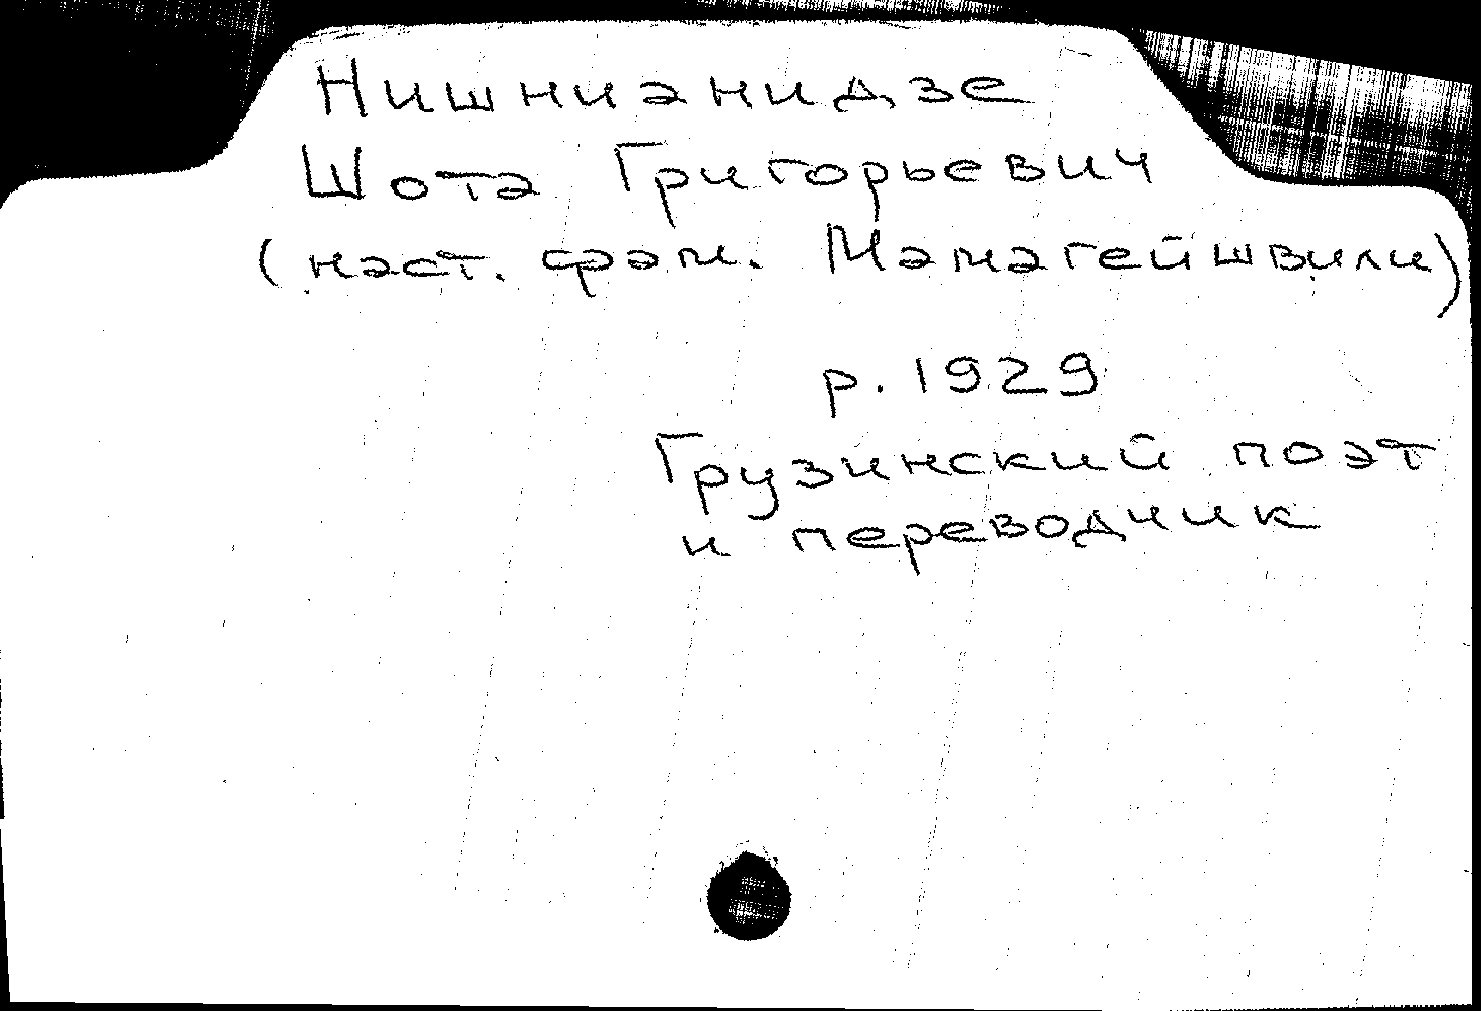 Нишнианидзе
Шота Григорьевич
(наст. фам. Мамагейшвили)
р. 1929
Грузинский поэт
и переводчик